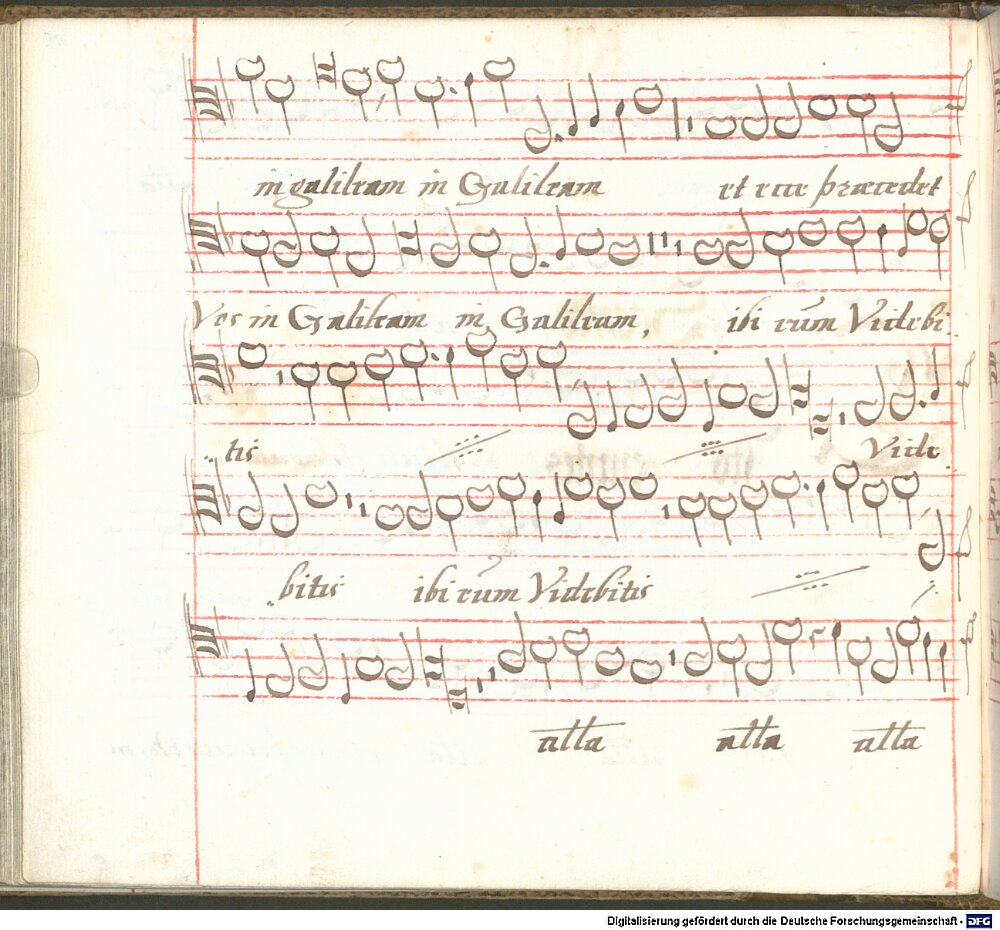 in galileam in Galileam et ecce præcedet
Vos in Galileam in Galileam, ibi eum Videbi
tis Vide
bitis ibi eum Videbitis
alla alla alla
Digitalisierung gefördert durch die Deutsche Forschungsgemeinschaft - DFG